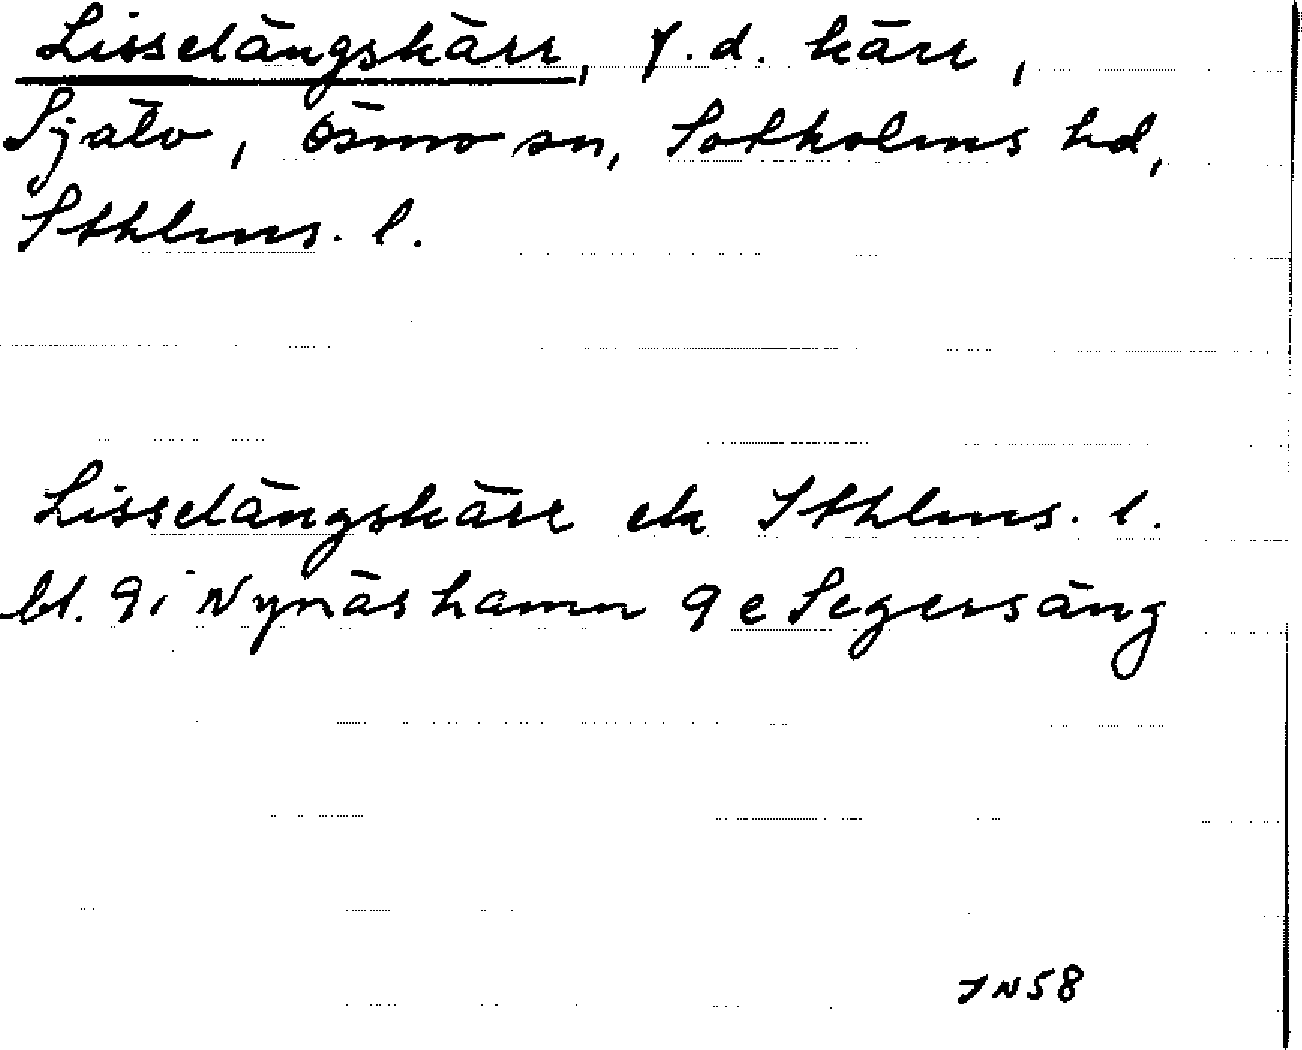 Lisselängskärr, f.d. kärr,
Själv, Ösmo sn, Sotholms hd,
Sthlms. l.
Lisselängskärr ek Sthlms. l.
bl. 9i Nynäshamn 9e Segersäng
JN58